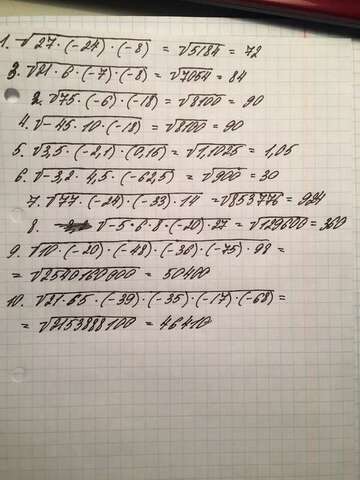 1. √27·(-24)·(-8) = √5184 = 72
3. √21·6·(-7)·(-8) = √7054 = 84
2. √75·(-6)·(-18) = √8100 = 90
4. √-45·10·(-18) = √8100 = 90
5. √3,5·(-2,1)·(0,15) = √1,1025 = 1,05
6. √-3,2·4,5·(-62,5) = √900 = 30
7. √77·(-24)·(-33)·14 = √853776 = 924
8. √-5·6·8·(-20)·27 = √129600 = 360
9. √10·(-20)·(-48)·(-36)·(-75)·98 =
= √2540160000 = 50400
10. √21·65·(-39)·(-35)·(-17)·(-68) =
= √2153888100 = 46410